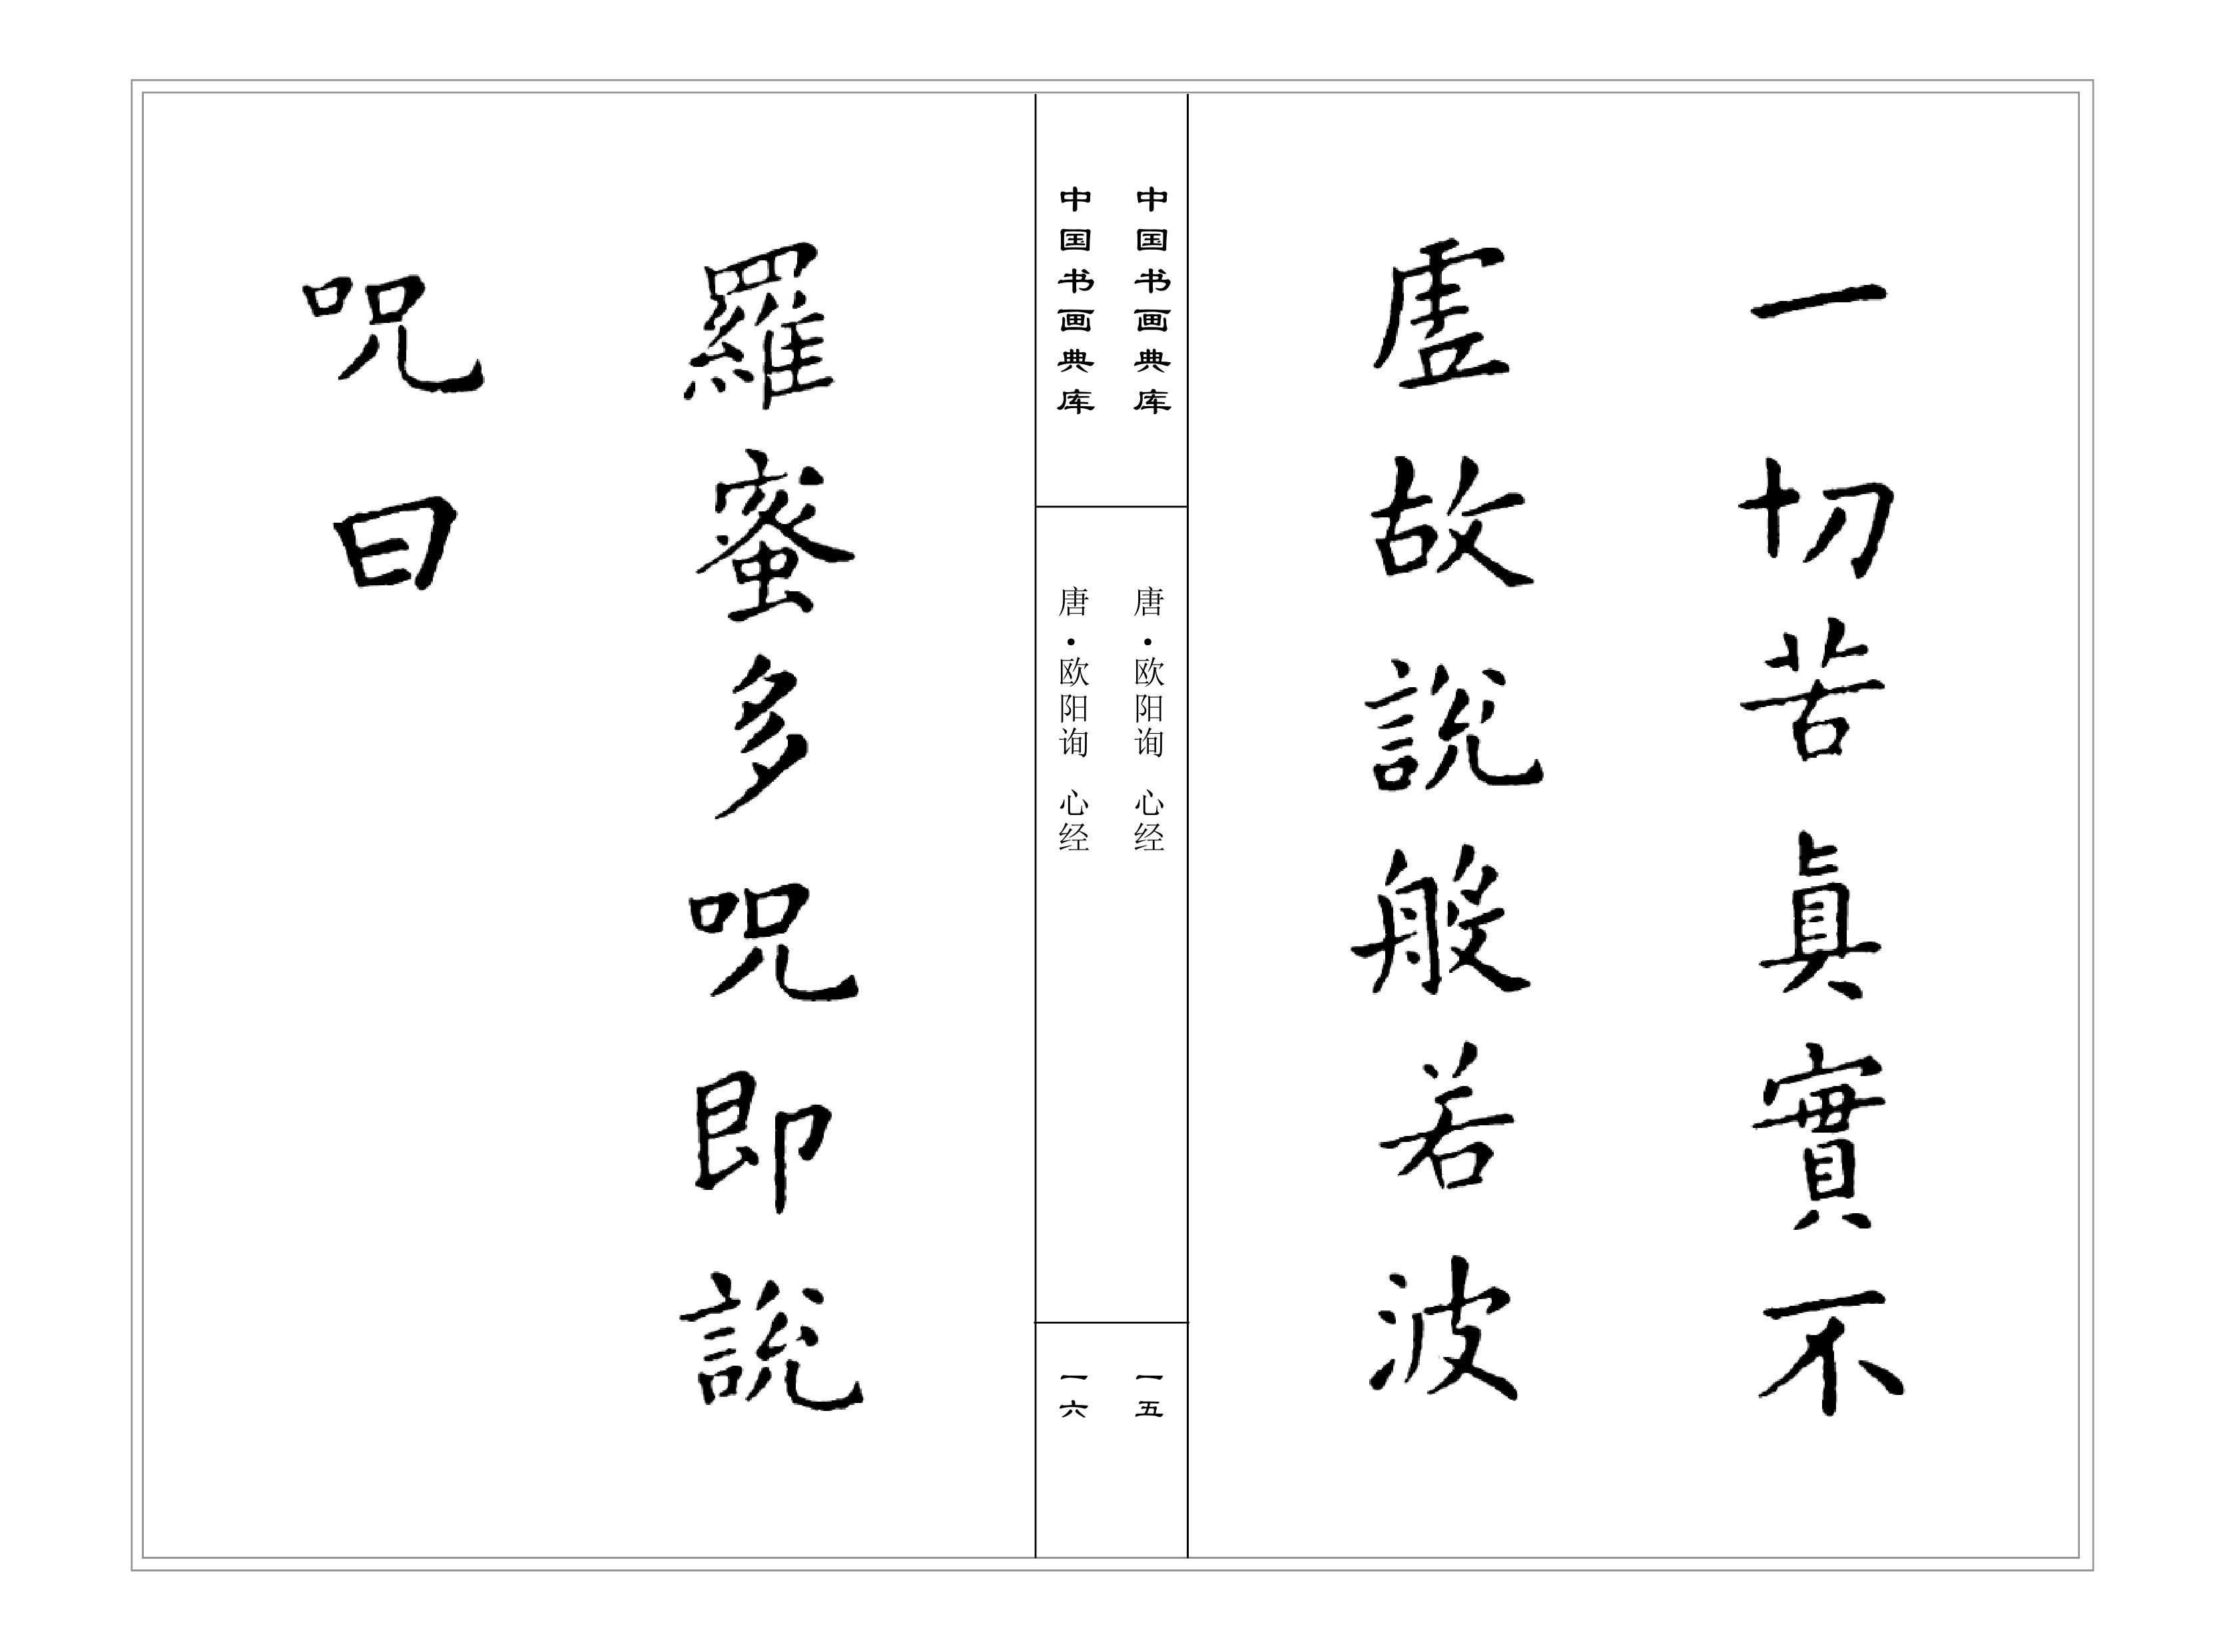 一切苦真實不
虛故說般若波
中国书画典库
唐·欧阳询 心经
一五
中国书画典库
唐·欧阳询 心经
一六
羅蜜多咒即說
咒曰